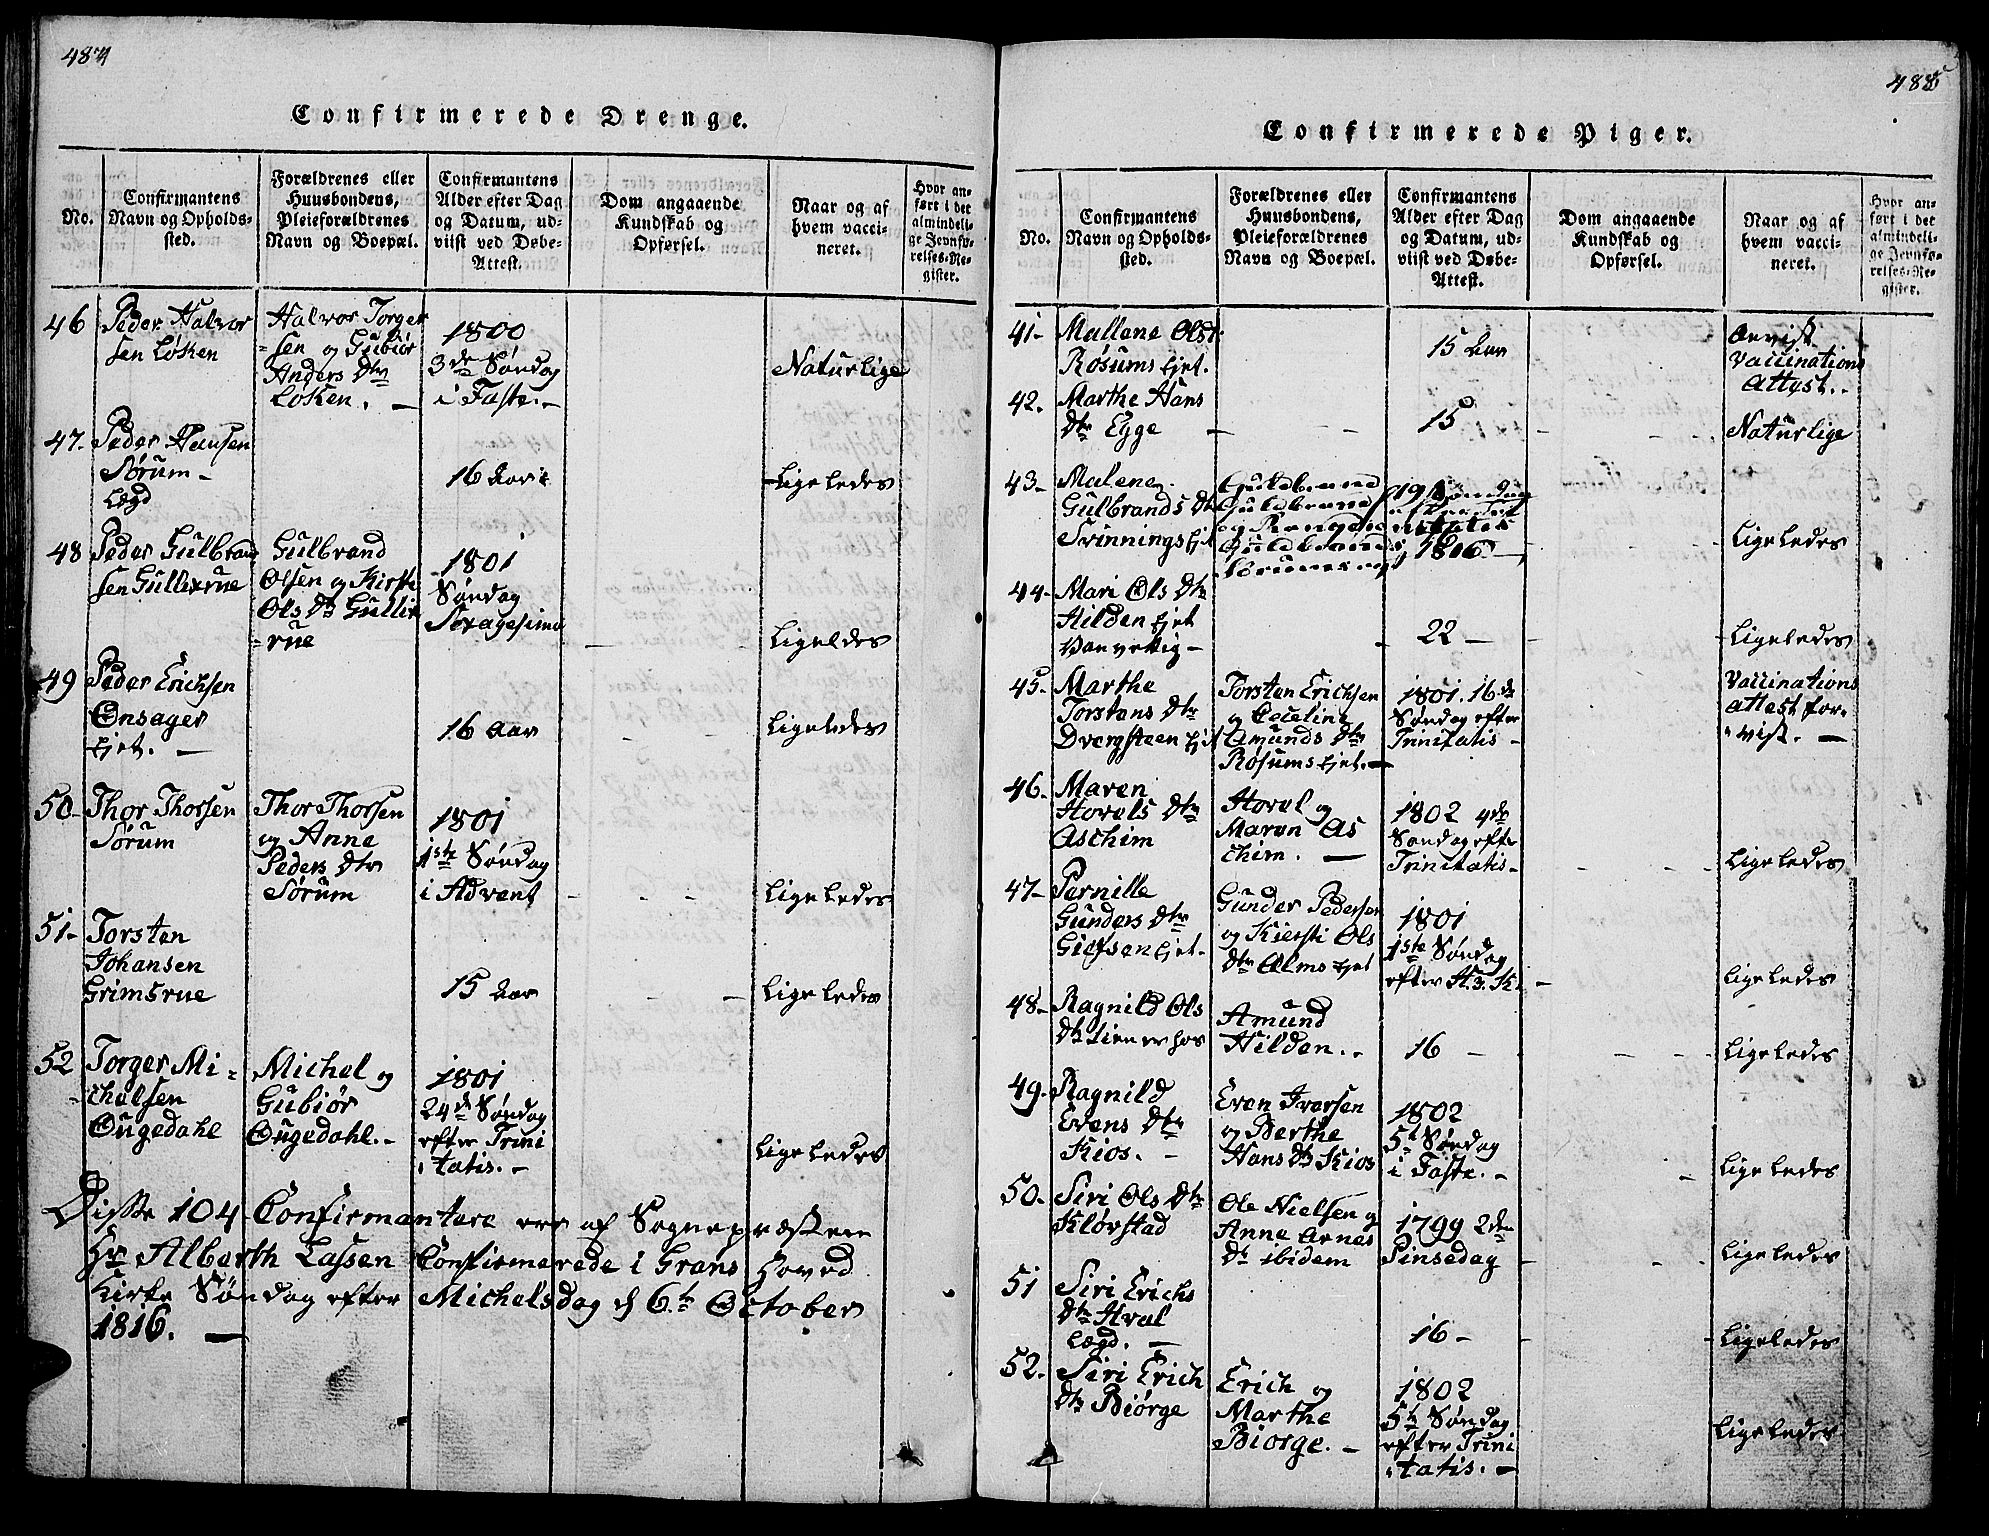 484
Confirmerede Drenge.
No.
Confirmantens
Navn og Opholds-
sted.
Forældrenes eller
Huusbondens,
Pleieforældrenes
Navn og Boepæl.
Confirmantens
Alder efter Dag
og Datum, ud-
viist ved Døbe-
Attest.
Dom angaaende
Kundskab og
Opførsel.
Naar og af
hvem vacci-
neret.
Hvor an-
ført i det
almindeli-
ge Jevnfø-
relses-Re-
gister.
46
Peder Halvor
sen Løken
Halvor Torger
=sen og Gubiør
Anders Dtr
Løken. -
1800
3de Søndag
i Faste. -
Naturlige
47.
Peder Hansen
Sørum -
Lægd
16 Aar
Ligeledes
48
Peder Gulbrand
sen Gullixrue
Gulbrand
Olsen og Kirsti
Ols Dtr Gullix
=rue
1801
Søndag
Sexagesima
Ligeldes
49
Peder Erichsen
Onsager
Ejet. -
16 Aar
Ligeledes
50-
Thor Thorsen
Sørum
Thor Thorsen
og Anne
Peders Dtr
Sørum
1801
1ste Søndag
i Advent
Ligeledes
51-
Torsten
Johansen
Grimsrue
15 Aar
Ligeledes
52
Torger Mi-
chelsen
Ougedahl
Michel og
Gubiør
Ougedahl. -
1801
24de Søndag
efter Trini
tatis. -
Ligeledes
Disse 104 Confirmantere ere af Sognepræsten
Hr Alberth Lassen Confirmerede i Grans Hoved
Kirke Søndag efter Michelsdag d 6te October
1816. -
485
Confirmerede Piger.
No.
Confirmantens
Navn og Opholds-
sted.
Forældrenes eller
Huusbondens,
Pleieforældrenes
Navn og Boepæl.
Confirmantens
Alder efter Dag
og Datum, ud-
viist ved Døbe-
Attest.
Dom angaaende
Kundskab og
Opførsel.
Naar og af
hvem vacci-
neret.
Hvor an-
ført i det
almindeli-
ge Jevnfø-
relses-Re-
gister.
41-
Mallene Olsdtr
Røsums Ejet.
15 Aar
Anvist
Vaccinations
Attest. -
42.
Marthe Hans
Dtr Egge
15
Naturlige
43-
Malene
Gulbrands Dtr
Svinnings Ejet
1816
Ligeledes
44-
Mari Ols Dtr
Hilden Ejet
Vanvettig -
22 -
Ligeledes
45-
Marthe
Torstens Dtr
Dvergsteen Ejet
Torsten Erichsen
og Eveline
Amunds Dtr
Røsums Ejet. -
1801. 16de
Søndag efter
Trinitatis -
Vaccinations
attest for-
vist. -
46.
Maren
Hovels Dtr
Aschim
Hovel og
Maren As
chim. -
1802 4de
Søndag efter
Trinitatis -
Ligeledes
47-
Pernille
Gunders Dtr
Giefsen Ejet.
Gunder Pedersen
og Kiersti Ols
Dtr Alms Ejet
1801
1ste Søndag
efter H. 3. K.
Ligeledes
48-
Ragnild Ols
Dtr tiener hos
Amund
Hilden. -
16 -
Ligeledes
49.
Ragnild
Evens Dtr
Kios. -
Even Iversen
og Berthe
Hans Dtr Kios
1802
5te Søndag
i Faste. -
Ligeledes
50-
Siri Ols Dtr
Kløvstad
Ole Nielsen og
Anne Arnes
Dtr ibidem
1799 2den
Pinsedag
Ligeledes
51
Siri Erichs
Dtr Hval
Lægd. -
16 -
Ligeledes
52.
Siri Erich
Dtr Biørge
Erich og
Marthe
Biorge. -
1802
5te Søndag
efter Trini
tatis. -
Ligeledes